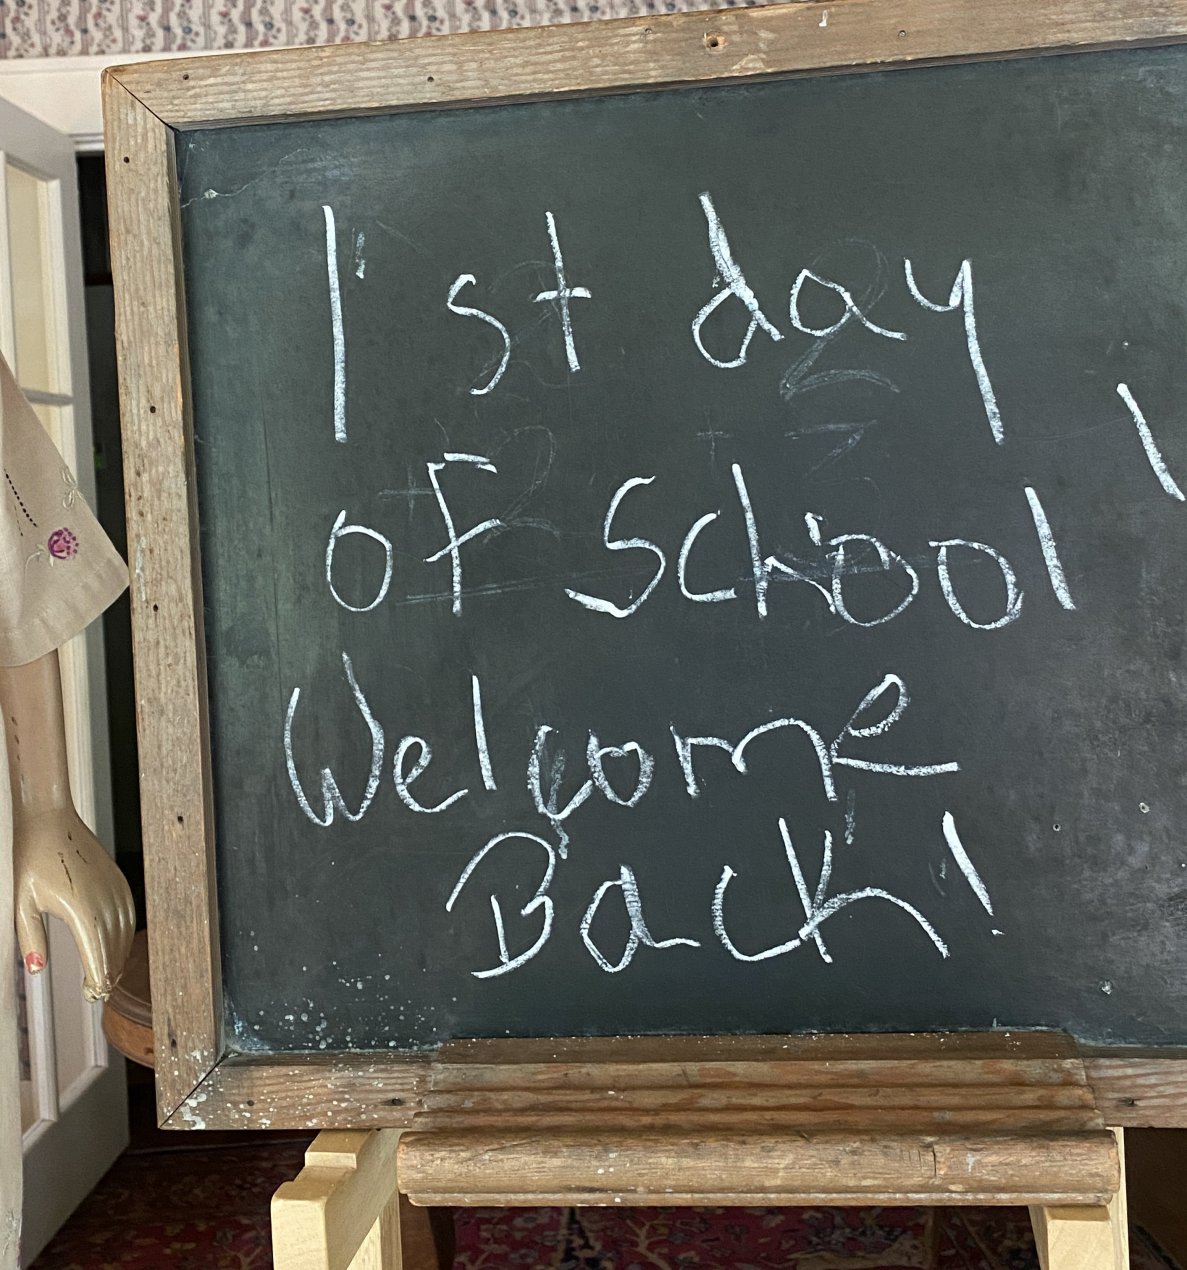 1st day
of School
Welcome
Back!